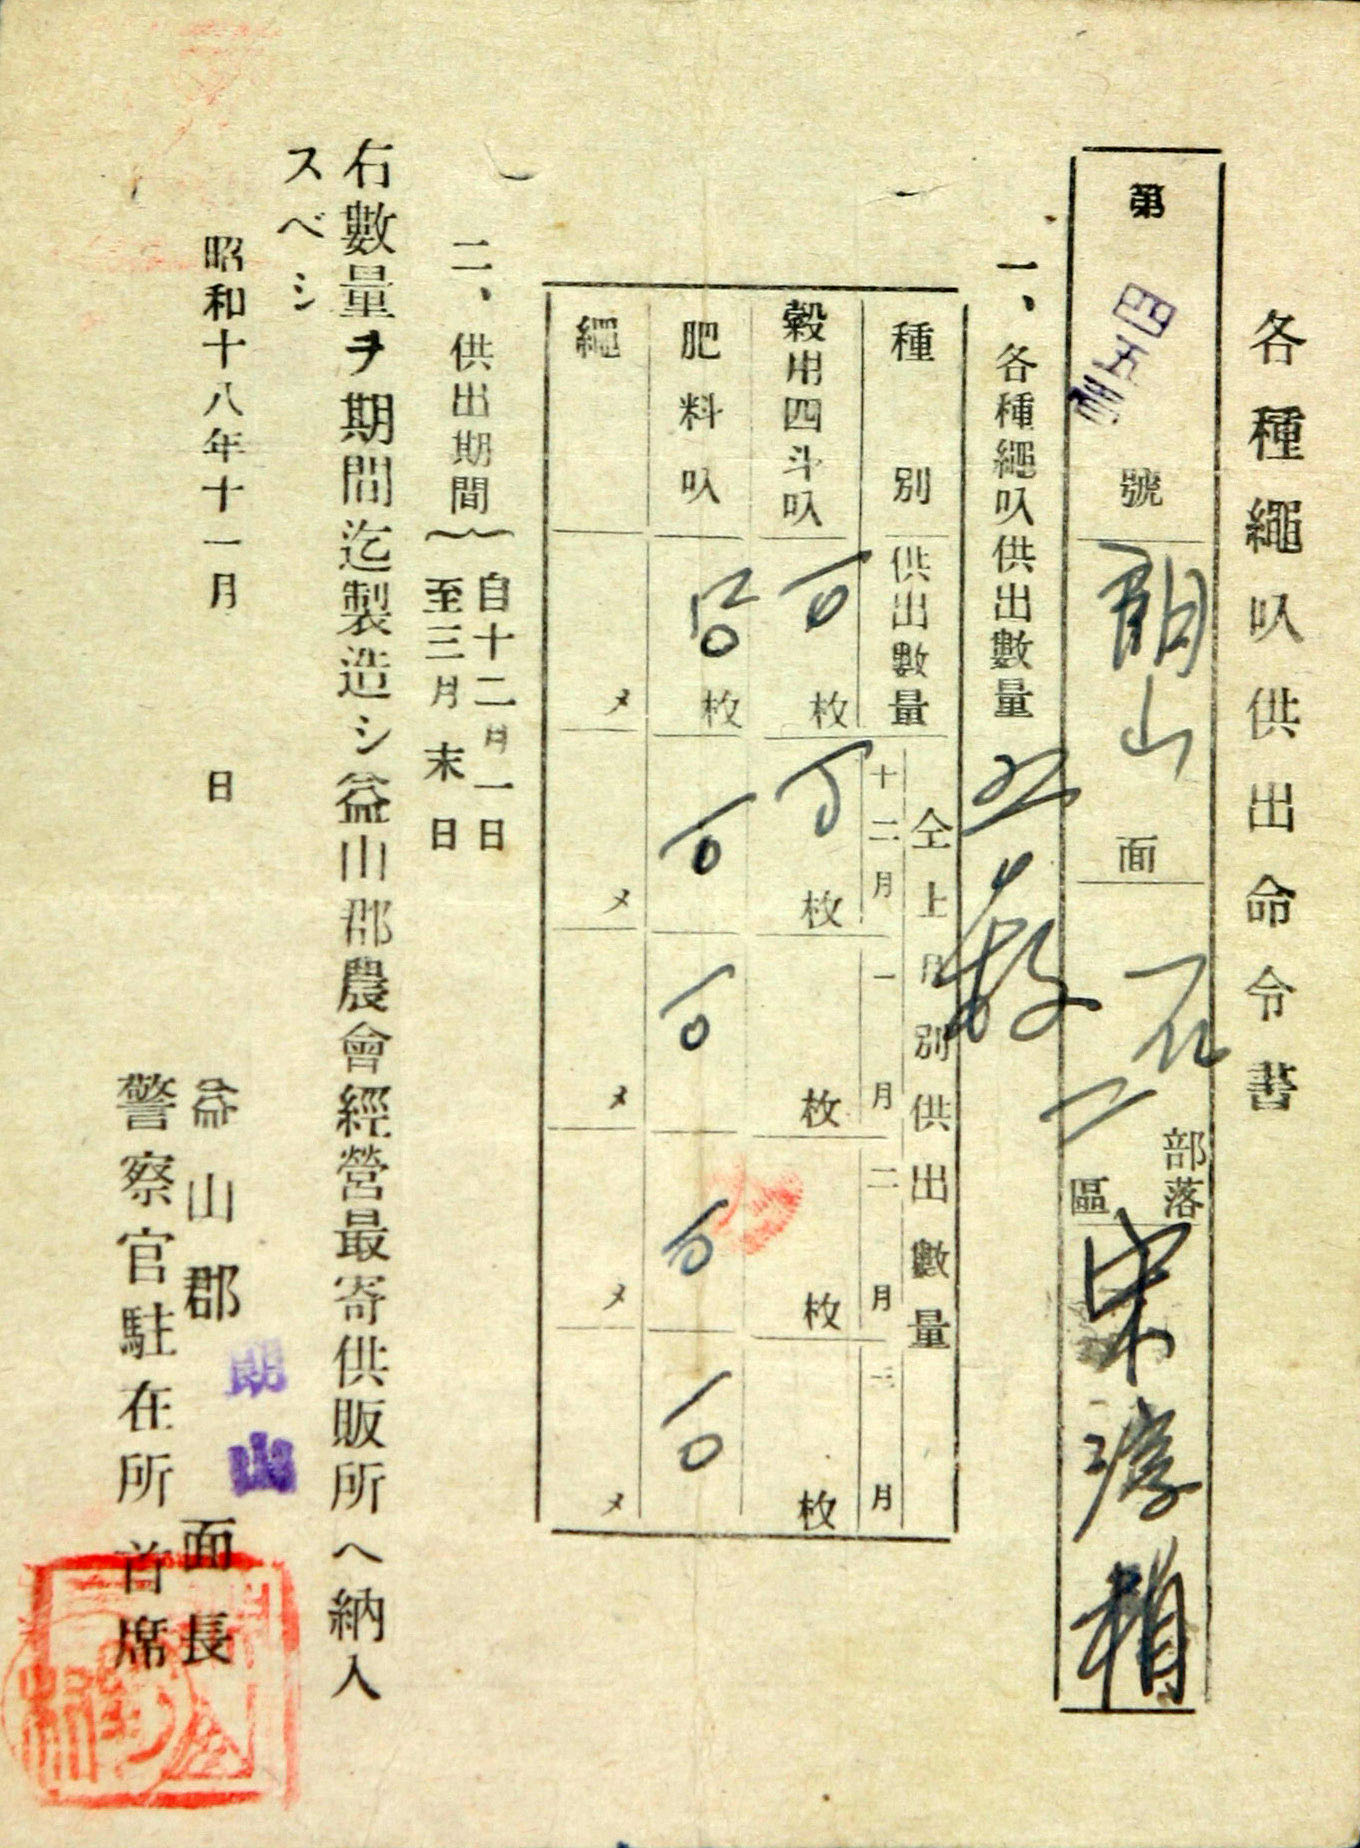 各種繩叺供出命令書
第 四五 號 朗山 面 一石 二 部落 區 宋淳相
一、各種繩叺供出數量
種別 供出數量 仝上月別供出數量
十二月 一月 二月 三月
穀用四斗叺 百 枚 百 枚 枚 枚 枚
肥料叺 四百 枚 百 百 百 百
繩 メ メ メ メ メ
二、供出期間 自十二月一日
至三月末日
右數量ヲ期間迄製造シ益山郡農會經營最寄供販所ヘ納入
スベシ
昭和十八年十一月 日
益山郡 朗山 面長
警察官駐在所首席